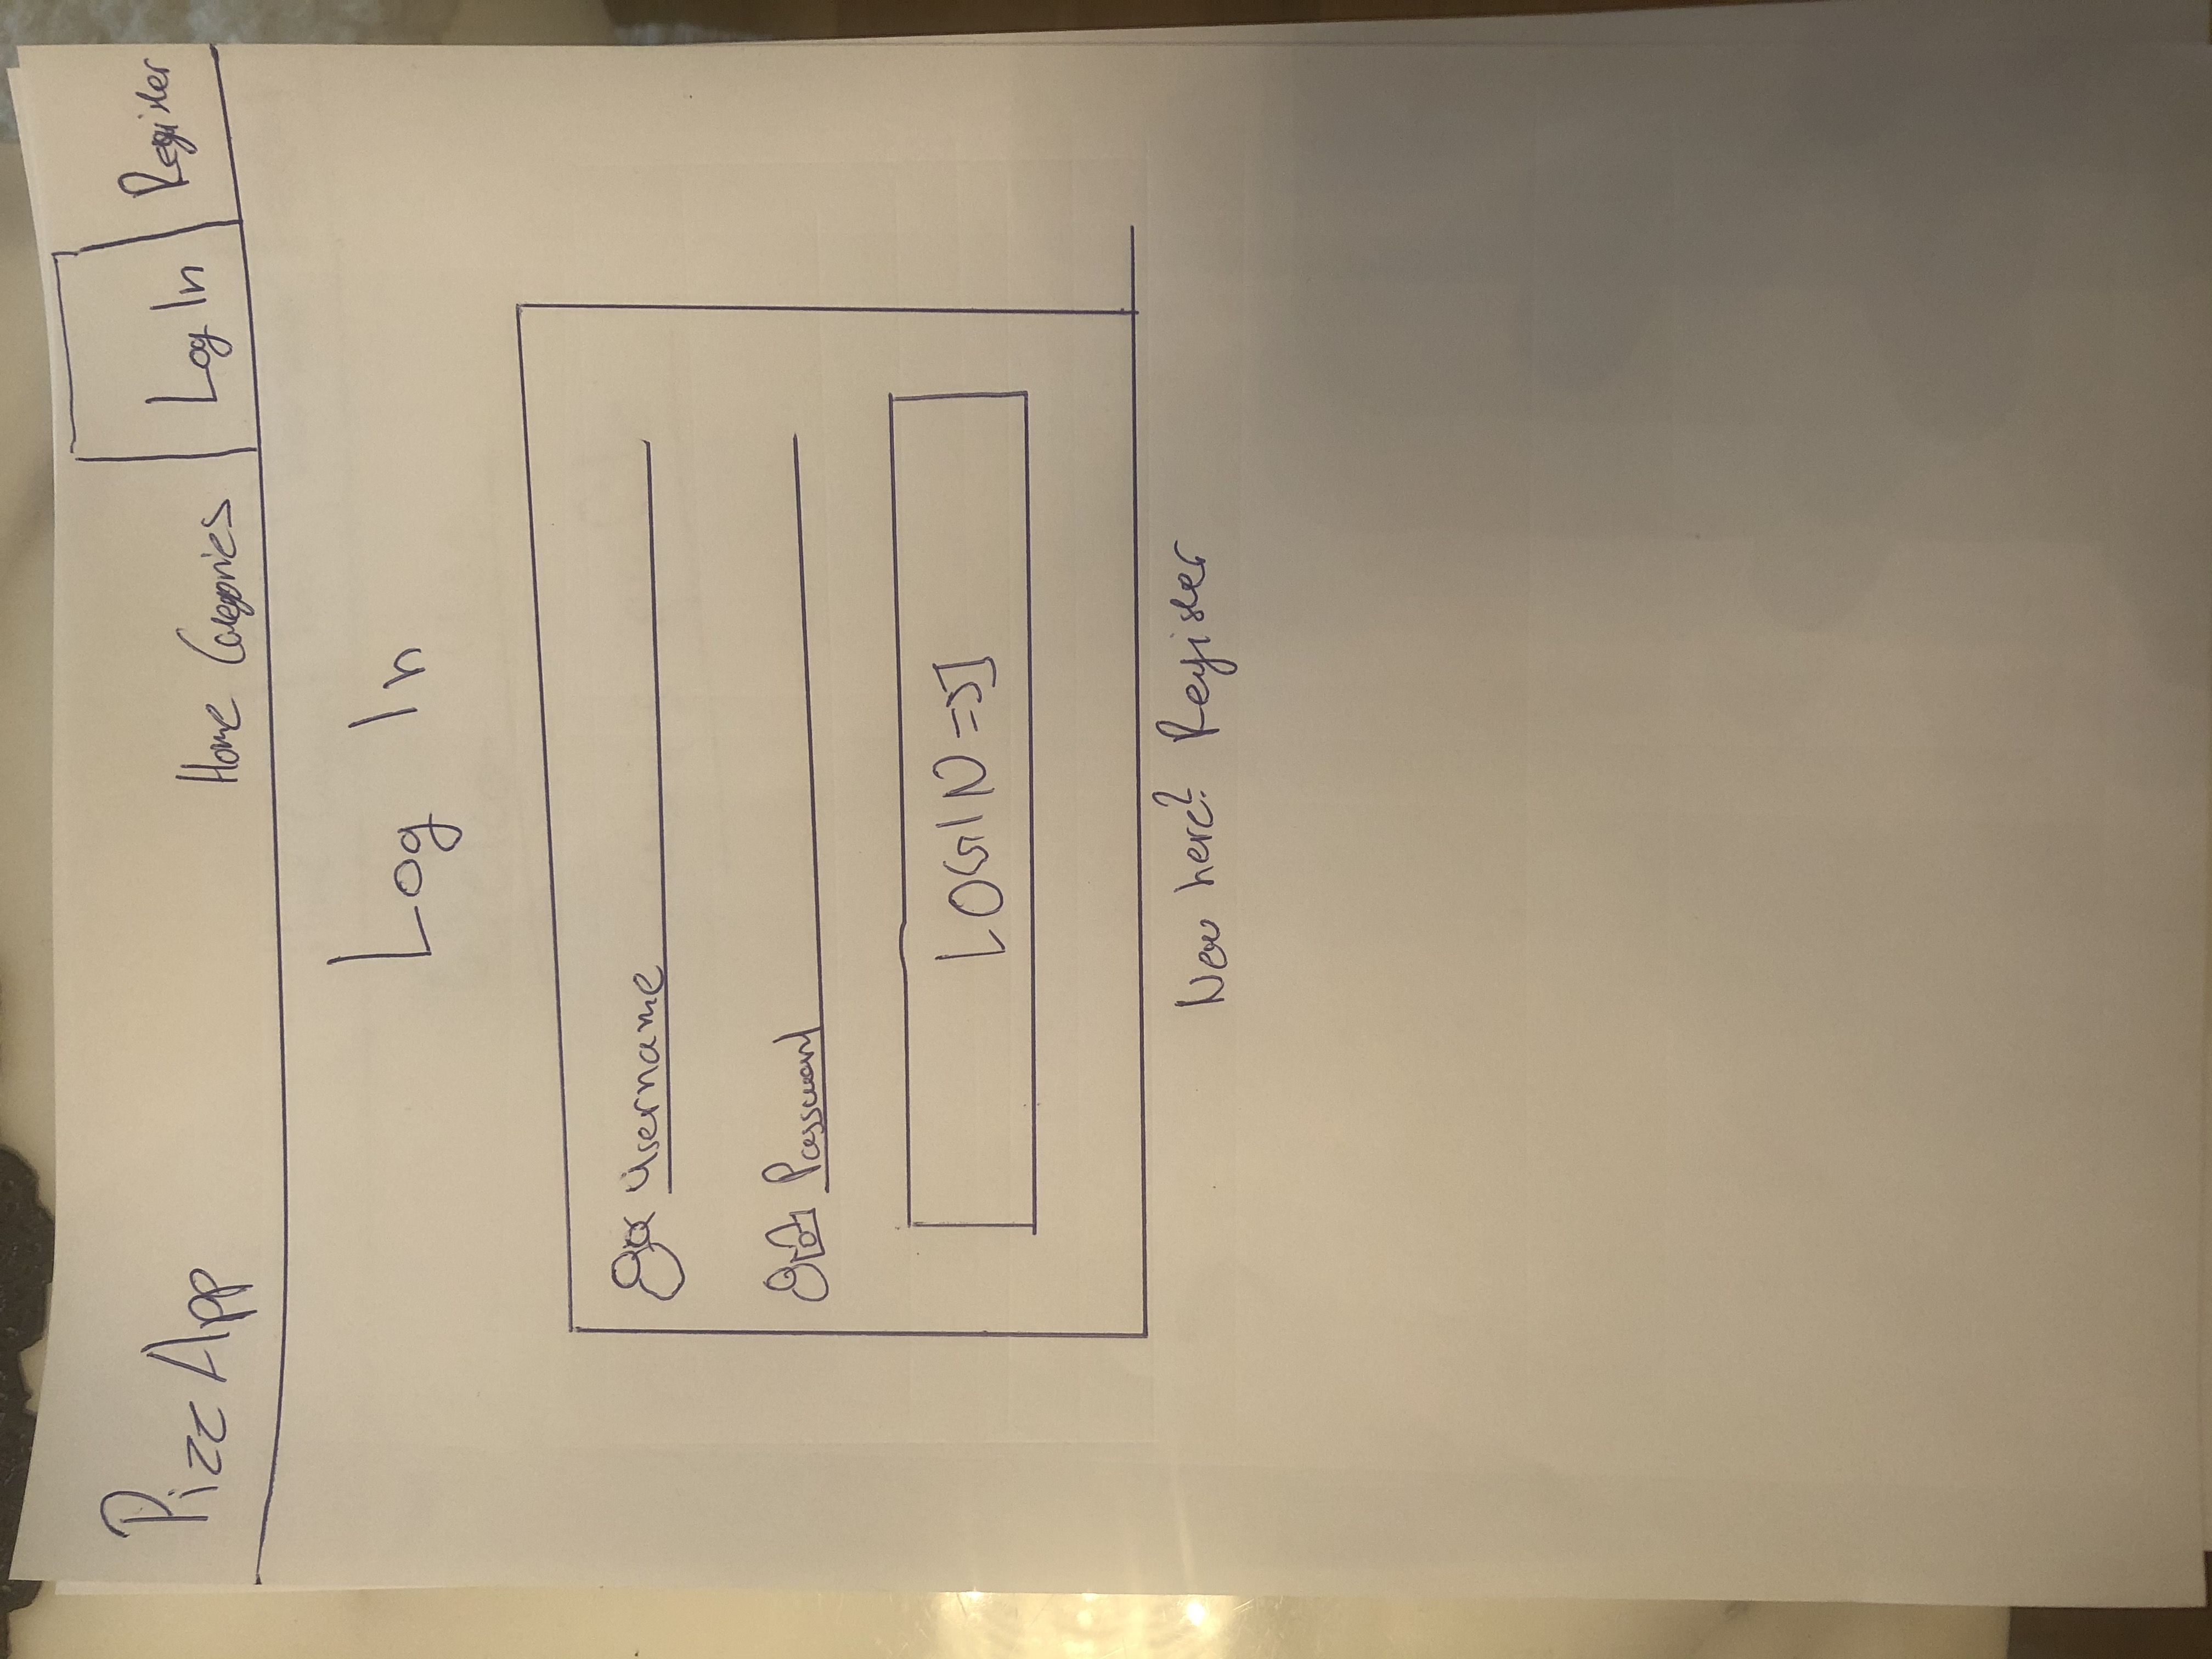 PizzApp
Home Categories Log In Register
Log In
Username
Password
LOGIN
New here? Register